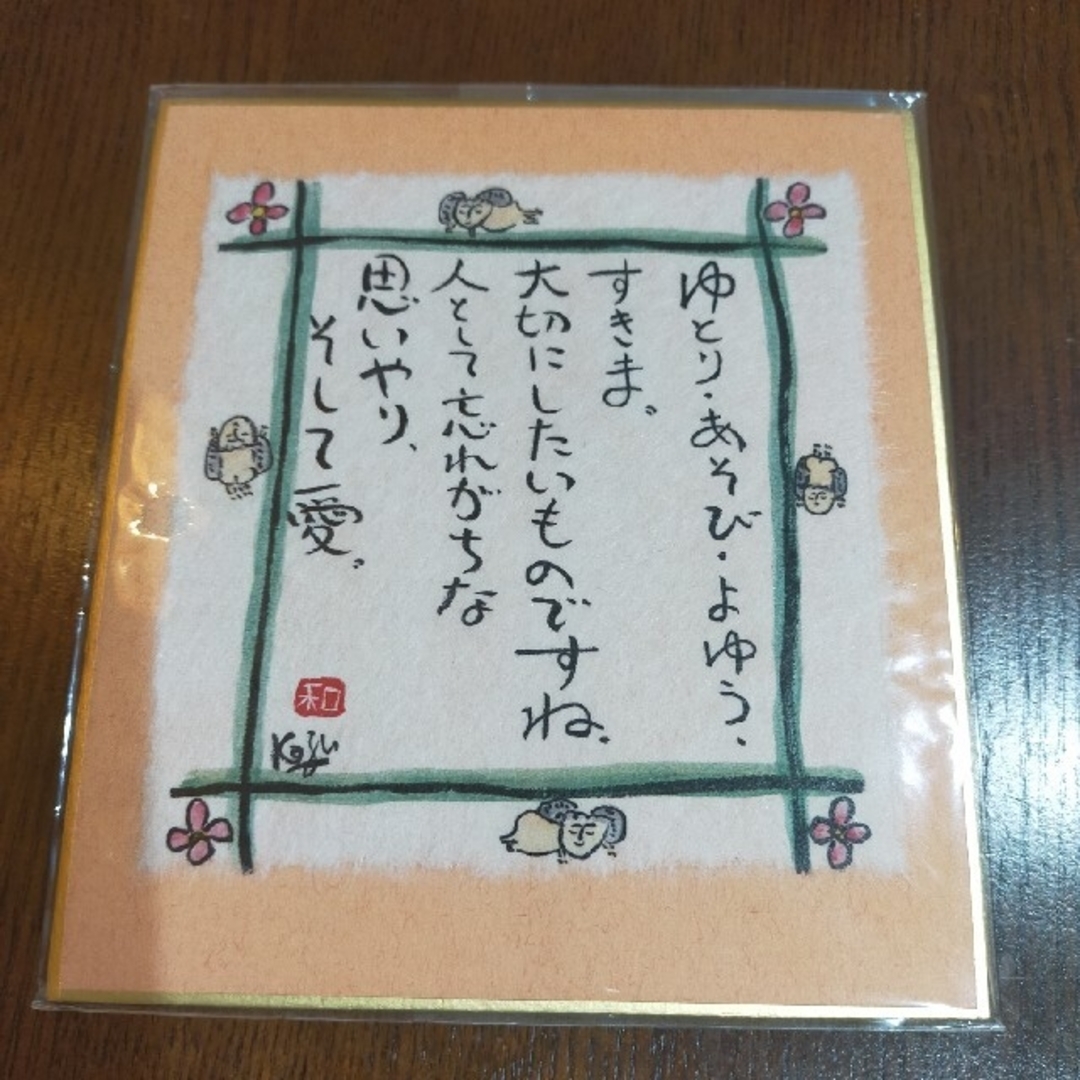 ゆとり・あそび・よゆう、
すきま。
大切にしたいものですね。
人として忘れがちな
思いやり、
そして愛。
和